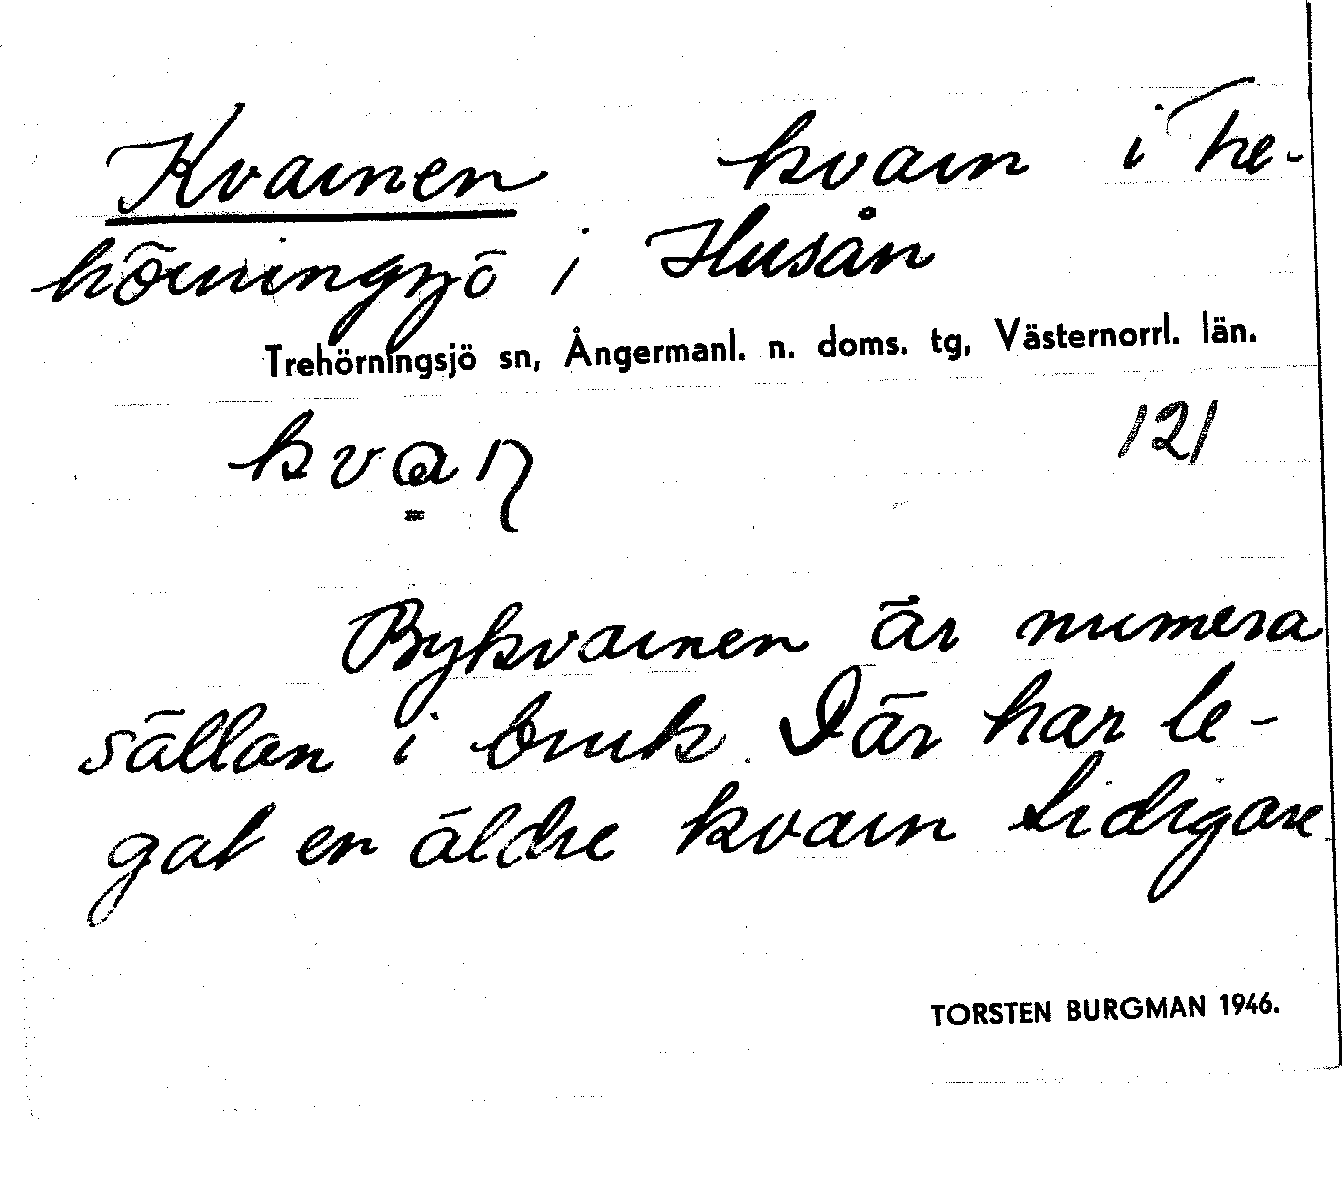 Kvarnen kvarn i Tre-
hörningsjö i Husån
Trehörningsjö sn, Ångermanl. n. doms. tg, Västernorrl. län.
121
Bykvarnen är numera
sällan i bruk. Där har le-
gat en äldre kvarn tidigare
TORSTEN BURGMAN 1946.